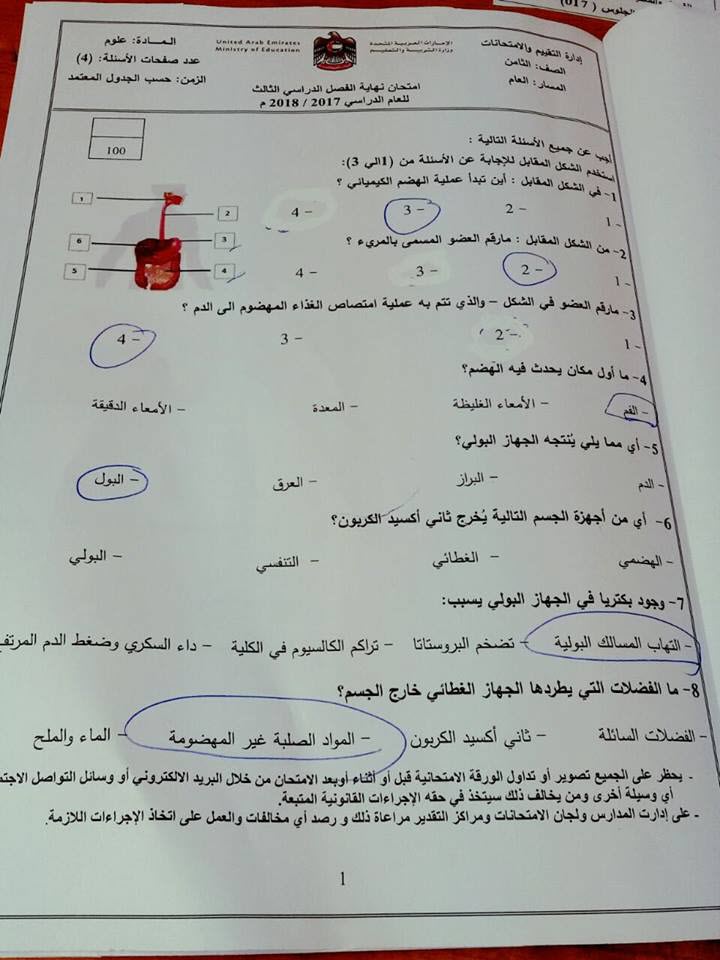 الجلوس ( 017)
إدارة التقييم والامتحانات
الصف: الثامن
المسار: العام
United Arab Emirates
Ministry of Education
الإمارات العربية المتحدة
وزارة التربية والتعليم
المــادة: علوم
عدد صفحات الأسئلة: (4)
الزمن: حسب الجدول المعتمد
امتحان نهاية الفصل الدراسي الثالث
للعام الدراسي 2017 / 2018 م
100
أجب عن جميع الأسئلة التالية :
استخدم الشكل المقابل للإجابة عن الأسئلة من (1الي 3):
1- في الشكل المقابل : أين تبدأ عملية الهضم الكيميائي ؟
- 1
- 2
- 3
- 4
1
2
3
4
5
6
2- من الشكل المقابل : مارقم العضو المسمى بالمريء ؟
- 1
- 2
- 3
- 4
3- مارقم العضو في الشكل – والذي تتم به عملية امتصاص الغذاء المهضوم الى الدم ؟
- 1
- 2
- 3
- 4
4- ما أول مكان يحدث فيه الهَضم؟
- الفم - الأمعاء الغليظة - المعدة - الأمعاء الدقيقة
5- أي مما يلي يُنتجه الجهاز البولي؟
- الدم - البراز - العرق - البول
6- أي من أجهزة الجسم التالية يُخرج ثاني أكسيد الكربون؟
- الهضمي - الغطائي - التنفسي - البولي
7- وجود بكتريا في الجهاز البولي يسبب:
- التهاب المسالك البولية - تضخم البروستاتا - تراكم الكالسيوم في الكلية - داء السكري وضغط الدم
8- ما الفضلات التي يطردها الجهاز الغطائي خارج الجسم؟
- الفضلات السائلة - ثاني أكسيد الكربون - المواد الصلبة غير المهضومة - الماء والملح
- يحظر على الجميع تصوير أو تداول الورقة الامتحانية قبل أو أثناء أوبعد الامتحان من خلال البريد الالكتروني أو وسائل التواصل
أي وسيلة أخرى ومن يخالف ذلك سيتخذ في حقه الإجراءات القانونية المتبعة.
- على إدارت المدارس ولجان الامتحانات ومراكز التقدير مراعاة ذلك و رصد أي مخالفات والعمل على اتخاذ الإجراءات اللازمة.
1